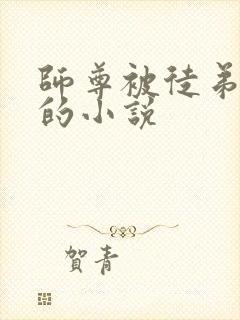 師尊被徒弟
的小說
賀青